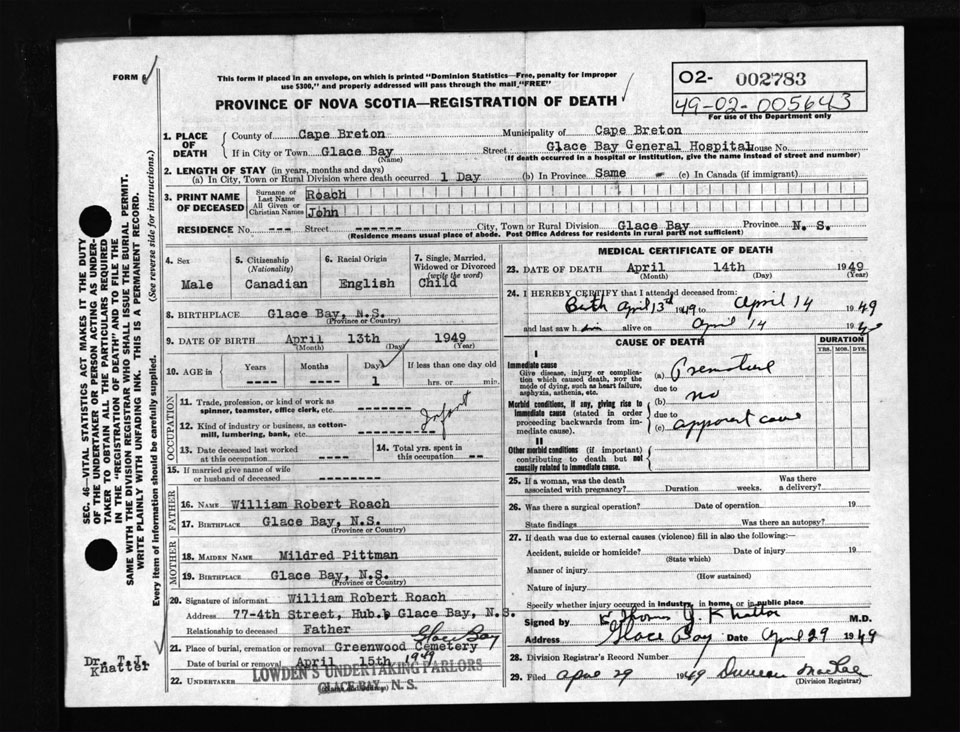 FORM 6
This form if placed in an envelope, on which is printed "Dominion Statistics—Free, penalty for improper
use $300," and properly addressed will pass through the mail "FREE"
PROVINCE OF NOVA SCOTIA—REGISTRATION OF DEATH
O2- 002783
49-02-005643
For use of the Department only
1. PLACE OF DEATH
County of Cape Breton Municipality of Cape Breton
If in City or Town Glace Bay (Name) Street Glace Bay General Hospital House No.
(If death occurred in a hospital or institution, give the name instead of street and number)
2. LENGTH OF STAY (in years, months and days)
(a) In City, Town or Rural Division where death occurred 1 Day (b) In Province Same (c) In Canada (if immigrant)
3. PRINT NAME OF DECEASED
Surname or Last Name Roach
All Given or Christian Names John
RESIDENCE No. --- Street ------ City, Town or Rural Division Glace Bay Province N. S.
(Residence means usual place of abode. Post Office Address for residents in rural parts not sufficient)
4. Sex
Male
5. Citizenship (Nationality)
Canadian
6. Racial Origin
English
7. Single, Married, Widowed or Divorced (write the word)
Child
8. BIRTHPLACE Glace Bay, N.S.
(Province or Country)
9. DATE OF BIRTH April 13th 1949
(Month) (Day) (Year)
10. AGE in Years ---- Months ---- Days 1 If less than one day old hrs. or min.
OCCUPATION
11. Trade, profession, or kind of work as spinner, teamster, office clerk, etc. Infant
12. Kind of industry or business, as cotton-mill, lumbering, bank, etc.
13. Date deceased last worked at this occupation -----
14. Total yrs. spent in this occupation --
15. If married give name of wife or husband of deceased
FATHER
16. NAME William Robert Roach
17. BIRTHPLACE Glace Bay, N.S.
(Province or Country)
MOTHER
18. MAIDEN NAME Mildred Pittman
19. BIRTHPLACE Glace Bay, N.S.
(Province or Country)
20. Signature of informant William Robert Roach
Address 77-4th Street, Hub. Glace Bay, N.S.
Relationship to deceased Father
21. Place of burial, cremation or removal Greenwood Cemetery Glace Bay
Date of burial or removal April 15th 1949
22. UNDERTAKER LOWDEN'S UNDERTAKING PARLORS
GLACE BAY, N. S.
Dr. T. J. Khatter
MEDICAL CERTIFICATE OF DEATH
23. DATE OF DEATH April 14th 1949
(Month) (Day)
24. I HEREBY CERTIFY that I attended deceased from:
Birth April 13th 1949 to April 14 1949
and last saw him alive on April 14 1949
CAUSE OF DEATH
DURATION
YRS. MOS. DYS.
I
Immediate cause
Give disease, injury or complication which caused death, NOT the mode of dying, such as heart failure, asphyxia, asthenia, etc.
(a) Premature
due to
Morbid conditions, if any, giving rise to immediate cause (stated in order proceeding backwards from immediate cause).
(b) no
due to
(c) apparent cause
II
Other morbid conditions (if important) contributing to death but not causally related to immediate cause.
25. If a woman, was the death associated with pregnancy? Duration weeks. Was there a delivery?
26. Was there a surgical operation? Date of operation 19
State findings Was there an autopsy?
27. If death was due to external causes (violence) fill in also the following:—
Accident, suicide or homicide? Date of injury 19
(State which)
Manner of injury
(How sustained)
Nature of injury
Specify whether injury occurred in industry, in home, or in public place
Signed by Thomas J. Khattar M.D.
Address Glace Bay Date April 29 1949
28. Division Registrar's Record Number
29. Filed April 29 1949 Duncan MacRae
(Division Registrar)
SEC. 46—VITAL STATISTICS ACT MAKES IT THE DUTY
OF THE UNDERTAKER OR PERSON ACTING AS UNDER-
TAKER TO OBTAIN ALL THE PARTICULARS REQUIRED
IN THE "REGISTRATION OF DEATH" AND TO FILE THE
SAME WITH THE DIVISION REGISTRAR WHO SHALL ISSUE THE BURIAL PERMIT.
WRITE PLAINLY WITH UNFADING INK. THIS IS A PERMANENT RECORD.
Every item of information should be carefully supplied. (See reverse side for instructions.)